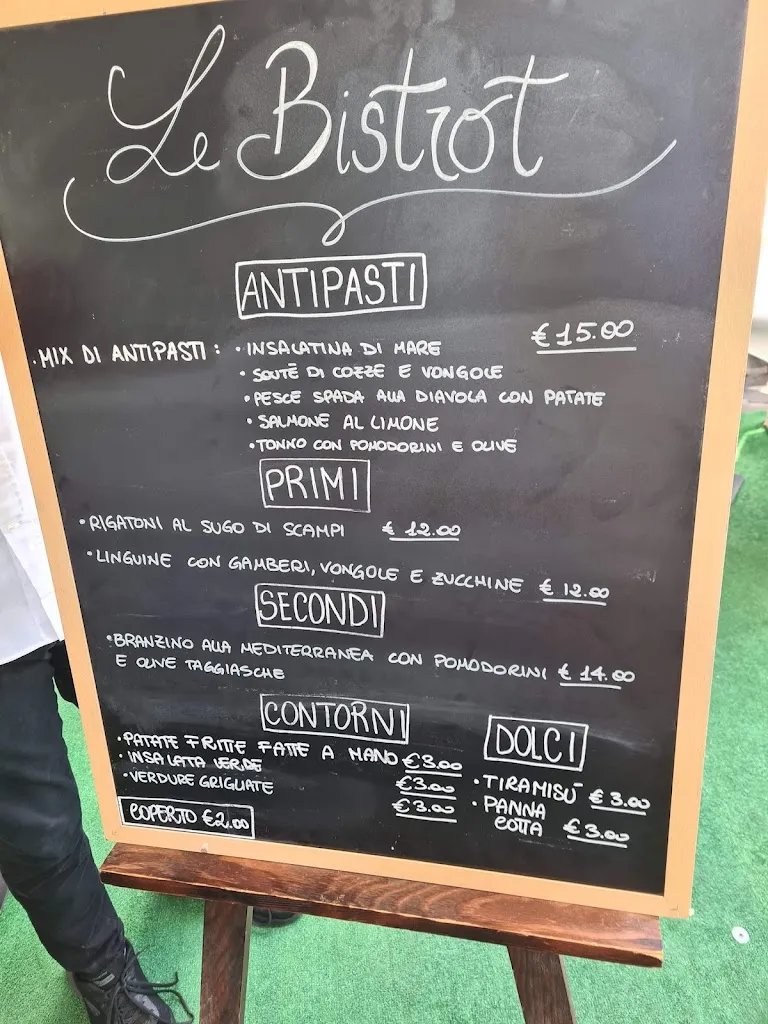 Le Bistrot
ANTIPASTI
• MIX DI ANTIPASTI : • INSALATINA DI MARE € 15.00
• SOUTÈ DI COZZE E VONGOLE
• PESCE SPADA ALLA DIAVOLA CON PATATE
• SALMONE AL LIMONE
• TONNO CON POMODORINI E OLIVE
PRIMI
• RIGATONI AL SUGO DI SCAMPI € 12.00
• LINGUINE CON GAMBERI, VONGOLE E ZUCCHINE € 12.00
SECONDI
• BRANZINO ALLA MEDITERRANEA CON POMODORINI € 14.00
E OLIVE TAGGIASCHE
CONTORNI
• PATATE FRITTE FATTE A MANO €3.00
• INSALATA VERDE €3.00
• VERDURE GRIGLIATE €3.00
DOLCI
• TIRAMISÙ €3.00
• PANNA
COTTA €3.00
COPERTO €2.00